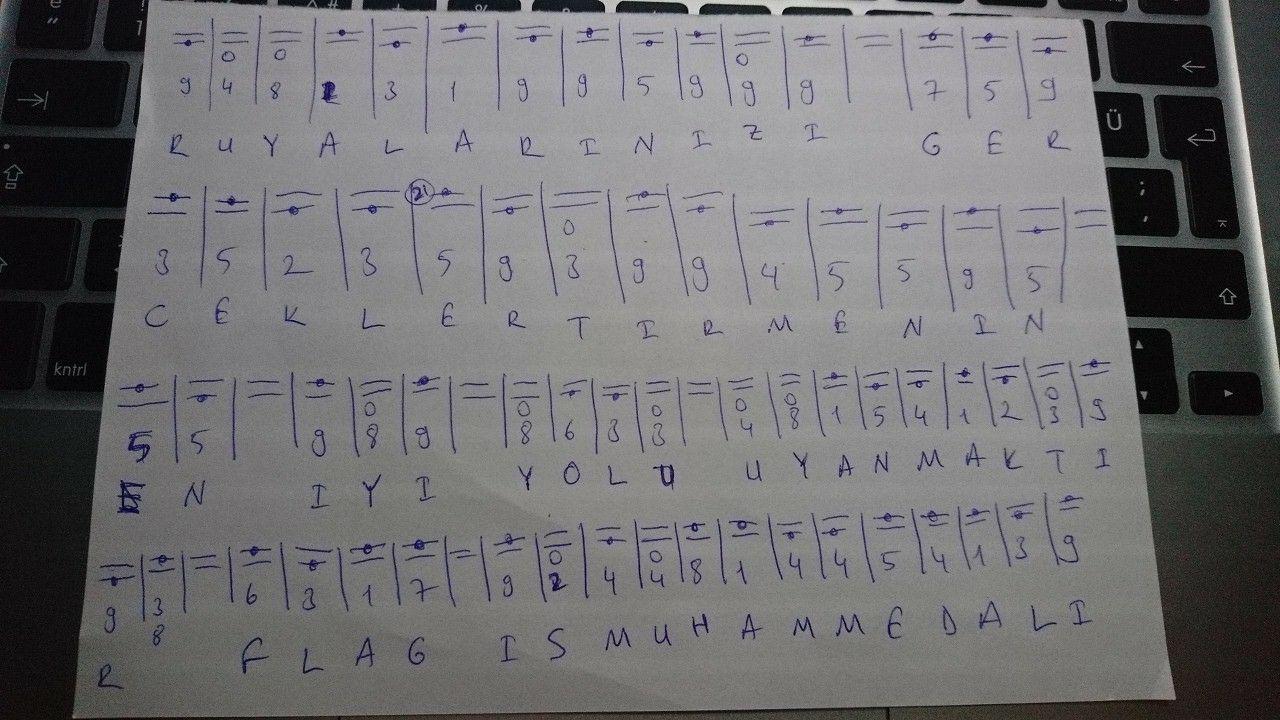 9 04 08 1 3 1 9 9 5 9 09 9 7 5 9
R U Y A L A R I N I Z I G E R
21
3 5 2 3 5 9 03 9 9 4 5 5 9 5
C E K L E R T I R M E N I N
5 5 9 08 9 08 6 3 03 04 08 1 5 4 1 2 03 9
E N I Y I Y O L U U Y A N M A K T I
9 38 6 3 1 7 9 02 4 04 8 1 4 4 5 4 1 3 9
R F L A G I S M U H A M M E D A L I
kntrl
Ü